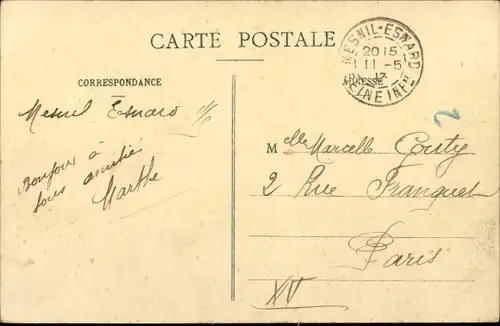 CARTE POSTALE
MESNIL-ESNARD
20 15
11-5
12
SEINE INFRE
CORRESPONDANCE
ADRESSE
Mesnil Esnard
Bonjour à
tous amitiés
Marthe
Melle Marcelle Couty
2 Rue Franquet
Paris
XV
2